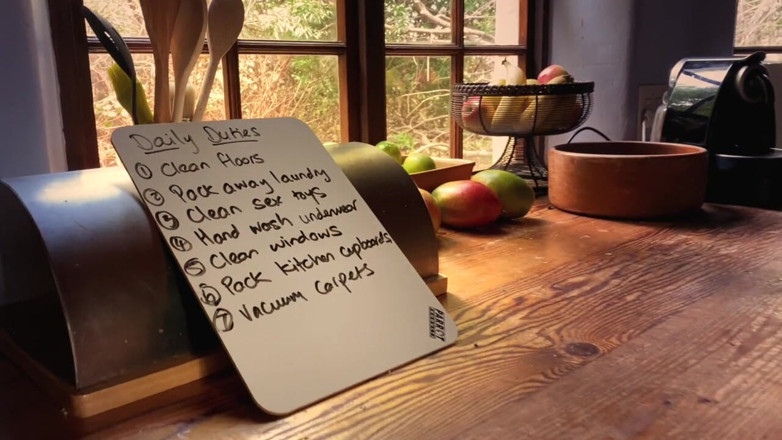 Daily Duties
① Clean floors
② Pack away laundry
③ Clean sex toys
④ Hand wash underwear
⑤ Clean windows
⑥ Pack kitchen cupboards
⑦ Vacuum carpets
PARROT